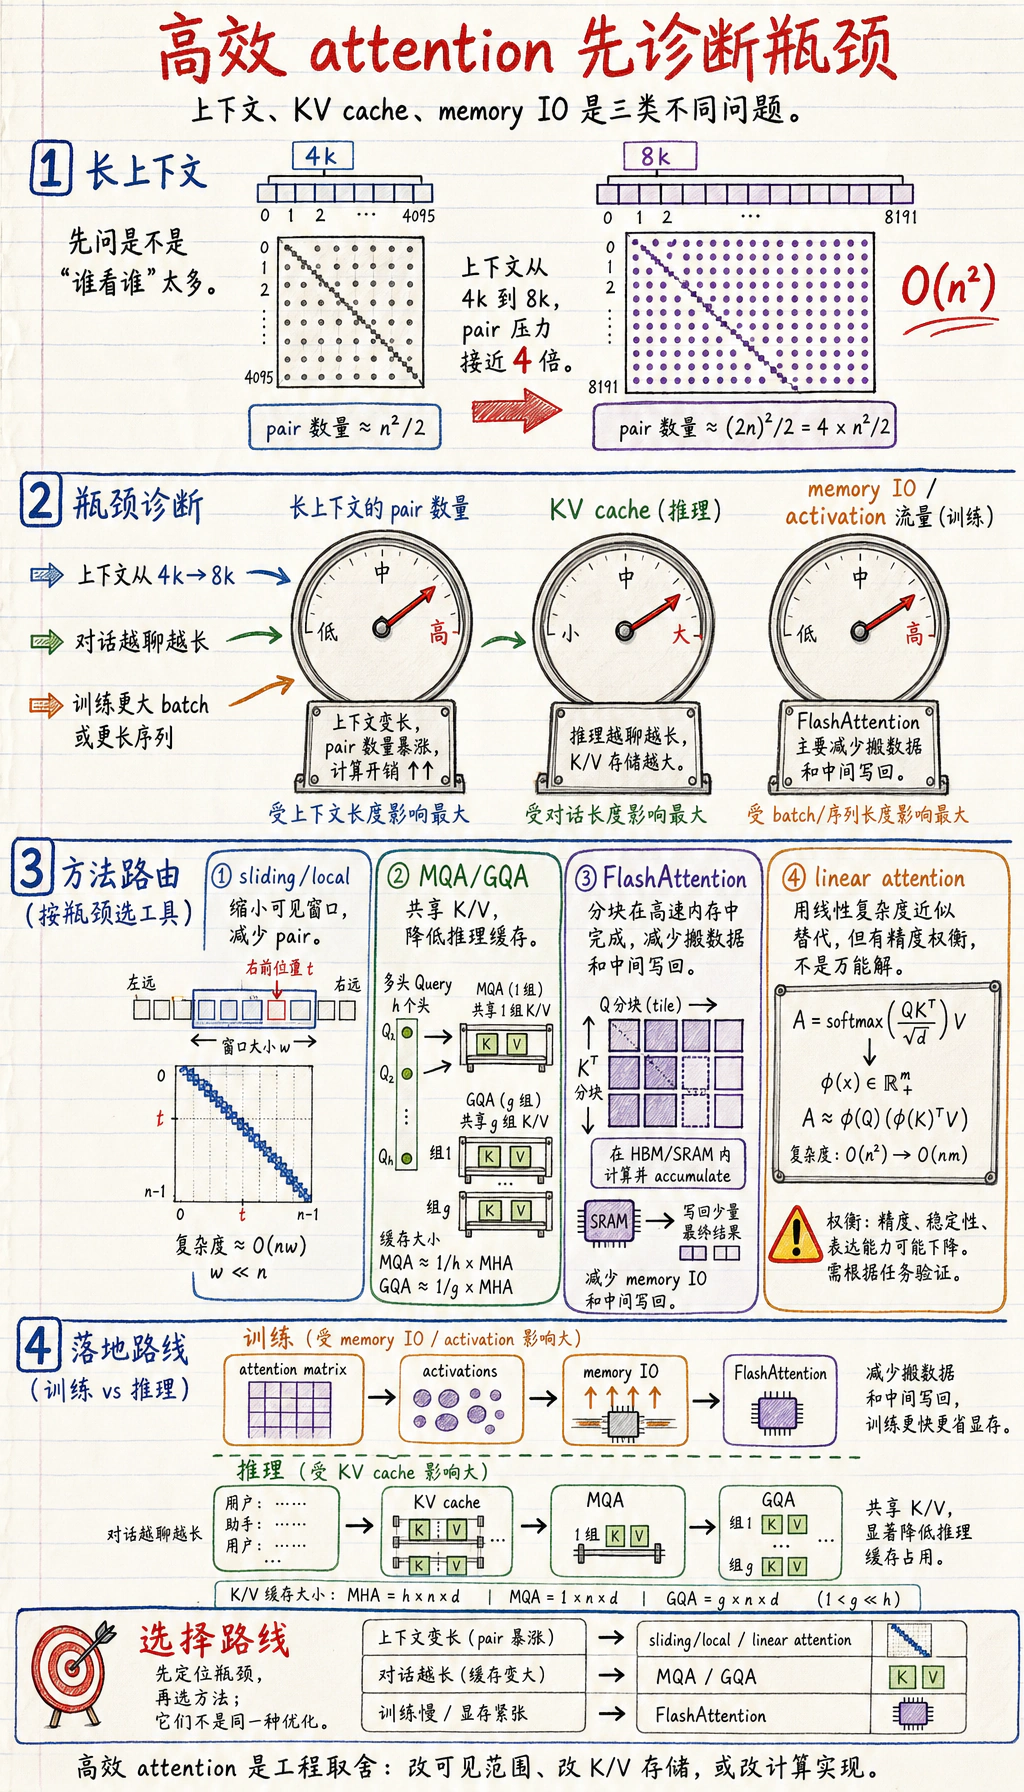 高效 attention 先诊断瓶颈
上下文、KV cache、memory IO 是三类不同问题。
1 长上下文
先问是不是
“谁看谁”太多。
4k
0 1 2 … 4095
0
1
2
⋮
4095
pair 数量 ≈ n²/2
上下文从
4k 到 8k,
pair 压力
接近 4 倍。
8k
0 1 2 … 8191
0
1
2
⋮
8191
pair 数量 ≈ (2n)²/2 = 4 × n²/2
O(n²)
2 瓶颈诊断
上下文从 4k→8k
对话越聊越长
训练更大 batch
或更长序列
长上下文的 pair 数量
低 中 高
上下文变长,
pair 数量暴涨,
计算开销 ↑↑
受上下文长度影响最大
KV cache (推理)
小 中 大
推理越聊越长,
K/V 存储越大。
受对话长度影响最大
memory IO /
activation 流量 (训练)
低 中 高
FlashAttention
主要减少搬数据
和中间写回。
受 batch/序列长度影响最大
3 方法路由
(按瓶颈选工具)
① sliding/local
缩小可见窗口,
减少 pair。
右前位置 t
左远 右远
← 窗口大小 w →
0
t
n-1
0 t n-1
复杂度 ≈ O(nw)
w ≪ n
② MQA/GQA
共享 K/V,
降低推理缓存。
多头 Query
h 个头
Q₂
Q₂
⋮
Qh
MQA (1 组)
共享 1 组 K/V
K V
GQA (g 组)
共享 g 组 K/V
组1 K V
…
组g K V
缓存大小
MQA ≈ 1/h × MHA
GQA ≈ 1/g × MHA
③ FlashAttention
分块在高速内存中
完成, 减少搬数据
和中间写回。
Q 分块 (tile) →
Kᵀ
分块
在 HBM/SRAM 内
计算并 accumulate
SRAM
写回少量
最终结果
减少 memory IO
和中间写回。
④ linear attention
用线性复杂度近似
替代, 但有精度权衡,
不是万能解。
A = softmax(QKᵀ/√d) V
↓
ϕ(x) ∈ ℝ₊ᵐ
A ≈ ϕ(Q) (ϕ(K)ᵀV)
复杂度: O(n²) → O(nm)
!
权衡: 精度、稳定性、
表达能力可能下降。
需根据任务验证。
4 落地路线
(训练 vs 推理)
训练 (受 memory IO / activation 影响大)
attention matrix
activations
memory IO
FlashAttention
减少搬数据
和中间写回,
训练更快更省显存。
推理 (受 KV cache 影响大)
对话越聊越长
用户: ……
助手: ……
用户: ……
…
KV cache
K V
…
K V
MQA
1 组 K V
GQA
组1 K V
… …
组g K V
共享 K/V,
显著降低推理
缓存占用。
K/V 缓存大小: MHA = h×n×d | MQA = 1×n×d | GQA = g×n×d (1 < g ≪ h)
选择路线
先定位瓶颈,
再选方法;
它们不是同一种优化。
上下文变长 (pair 暴涨) → sliding/local / linear attention
对话越长 (缓存变大) → MQA / GQA K V
训练慢 / 显存紧张 → FlashAttention
高效 attention 是工程取舍: 改可见范围、改 K/V 存储, 或改计算实现。